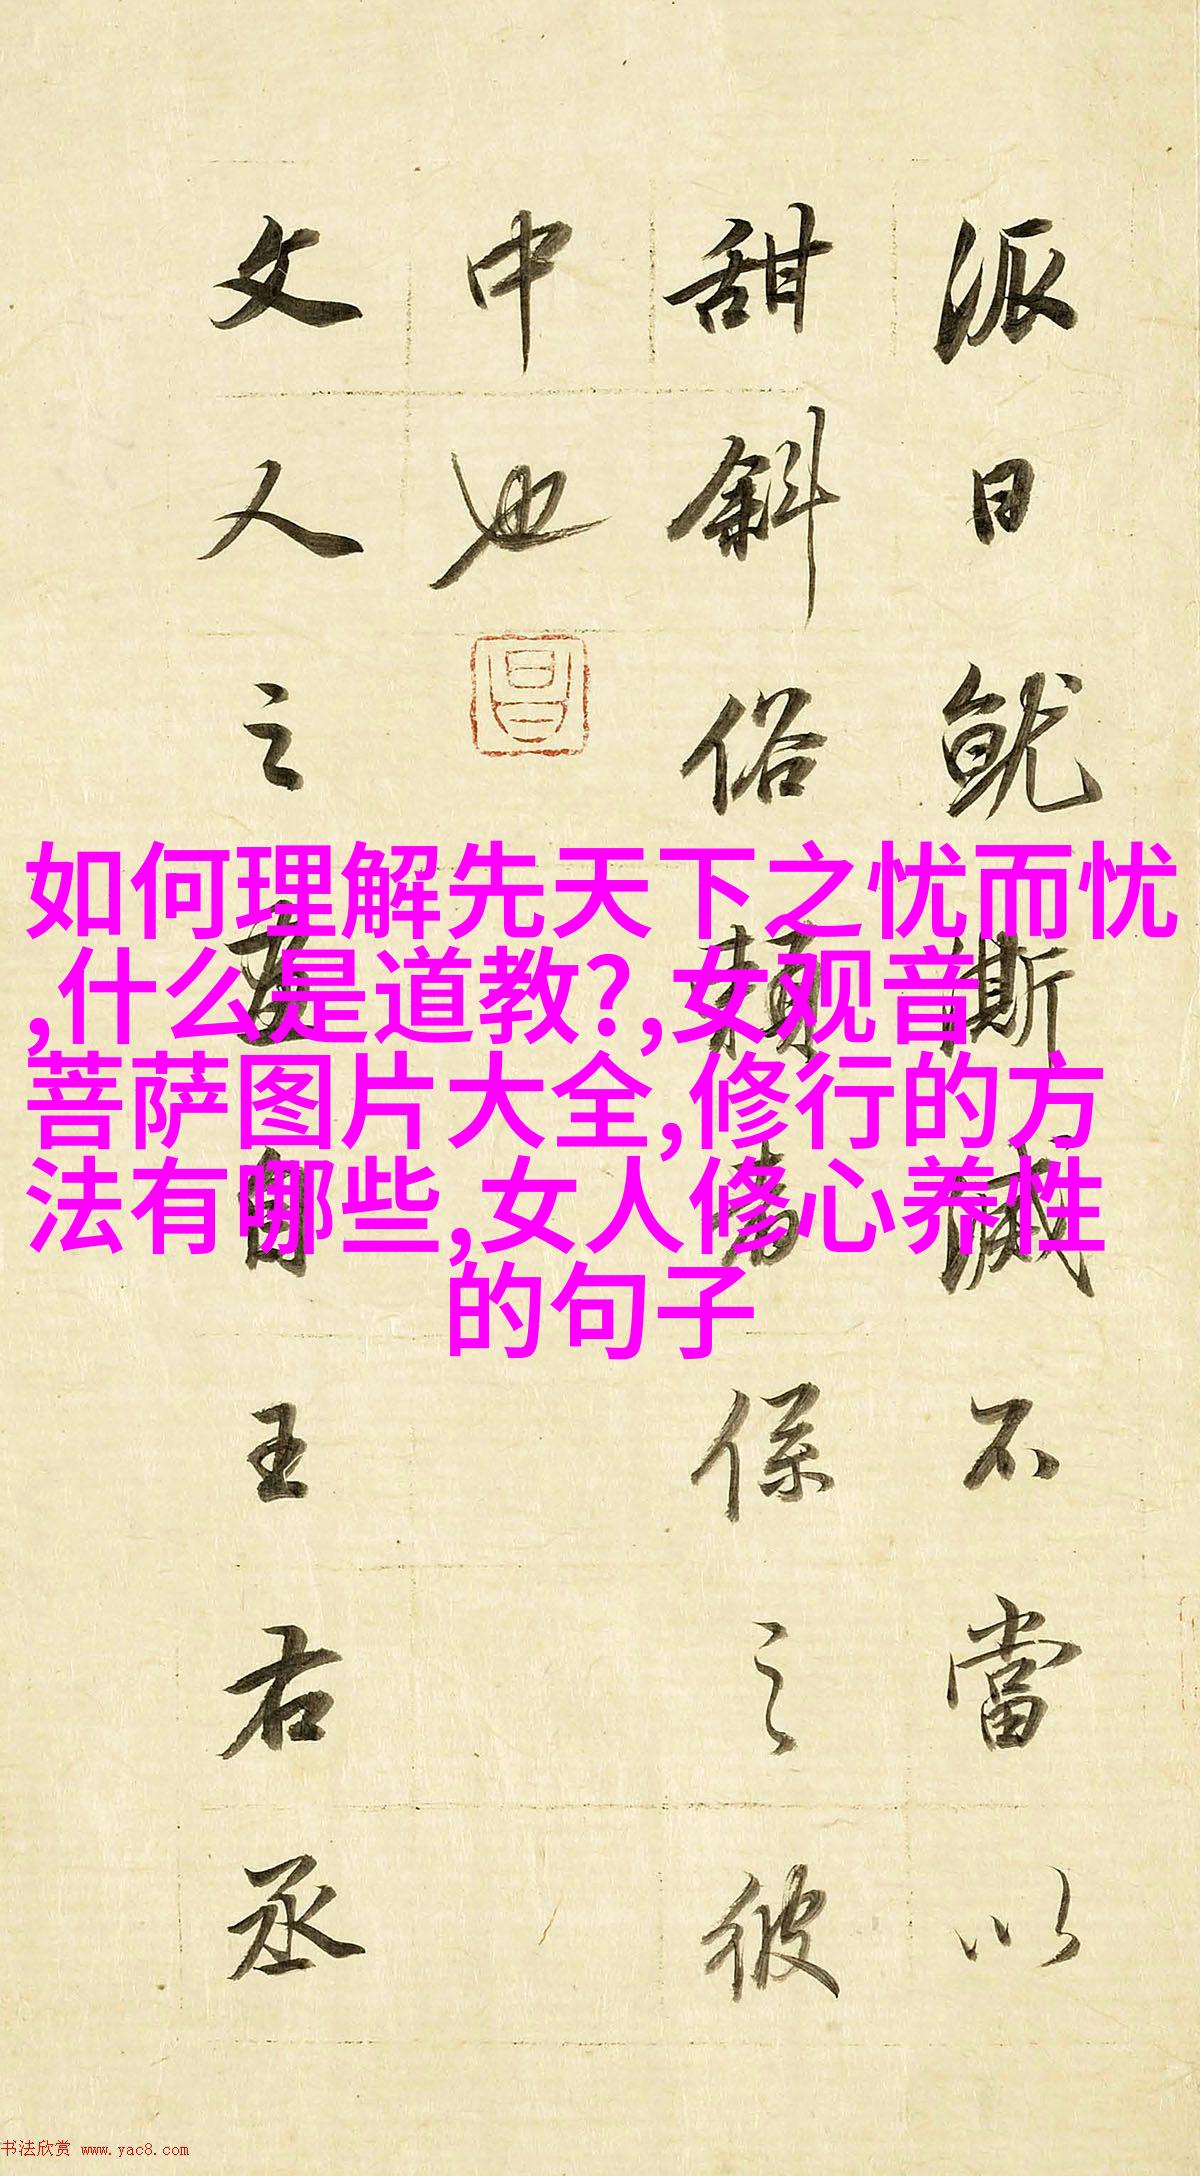 派日就澌滅不當以
甜斜俗賴者係之彼
中也
昌
文人之畫自王右丞
如何理解先天下之忧而忧
,什么是道教?,女观音
菩萨图片大全,修行的方
法有哪些,女人修心养性
的句子
书法欣赏 www.yac8.com